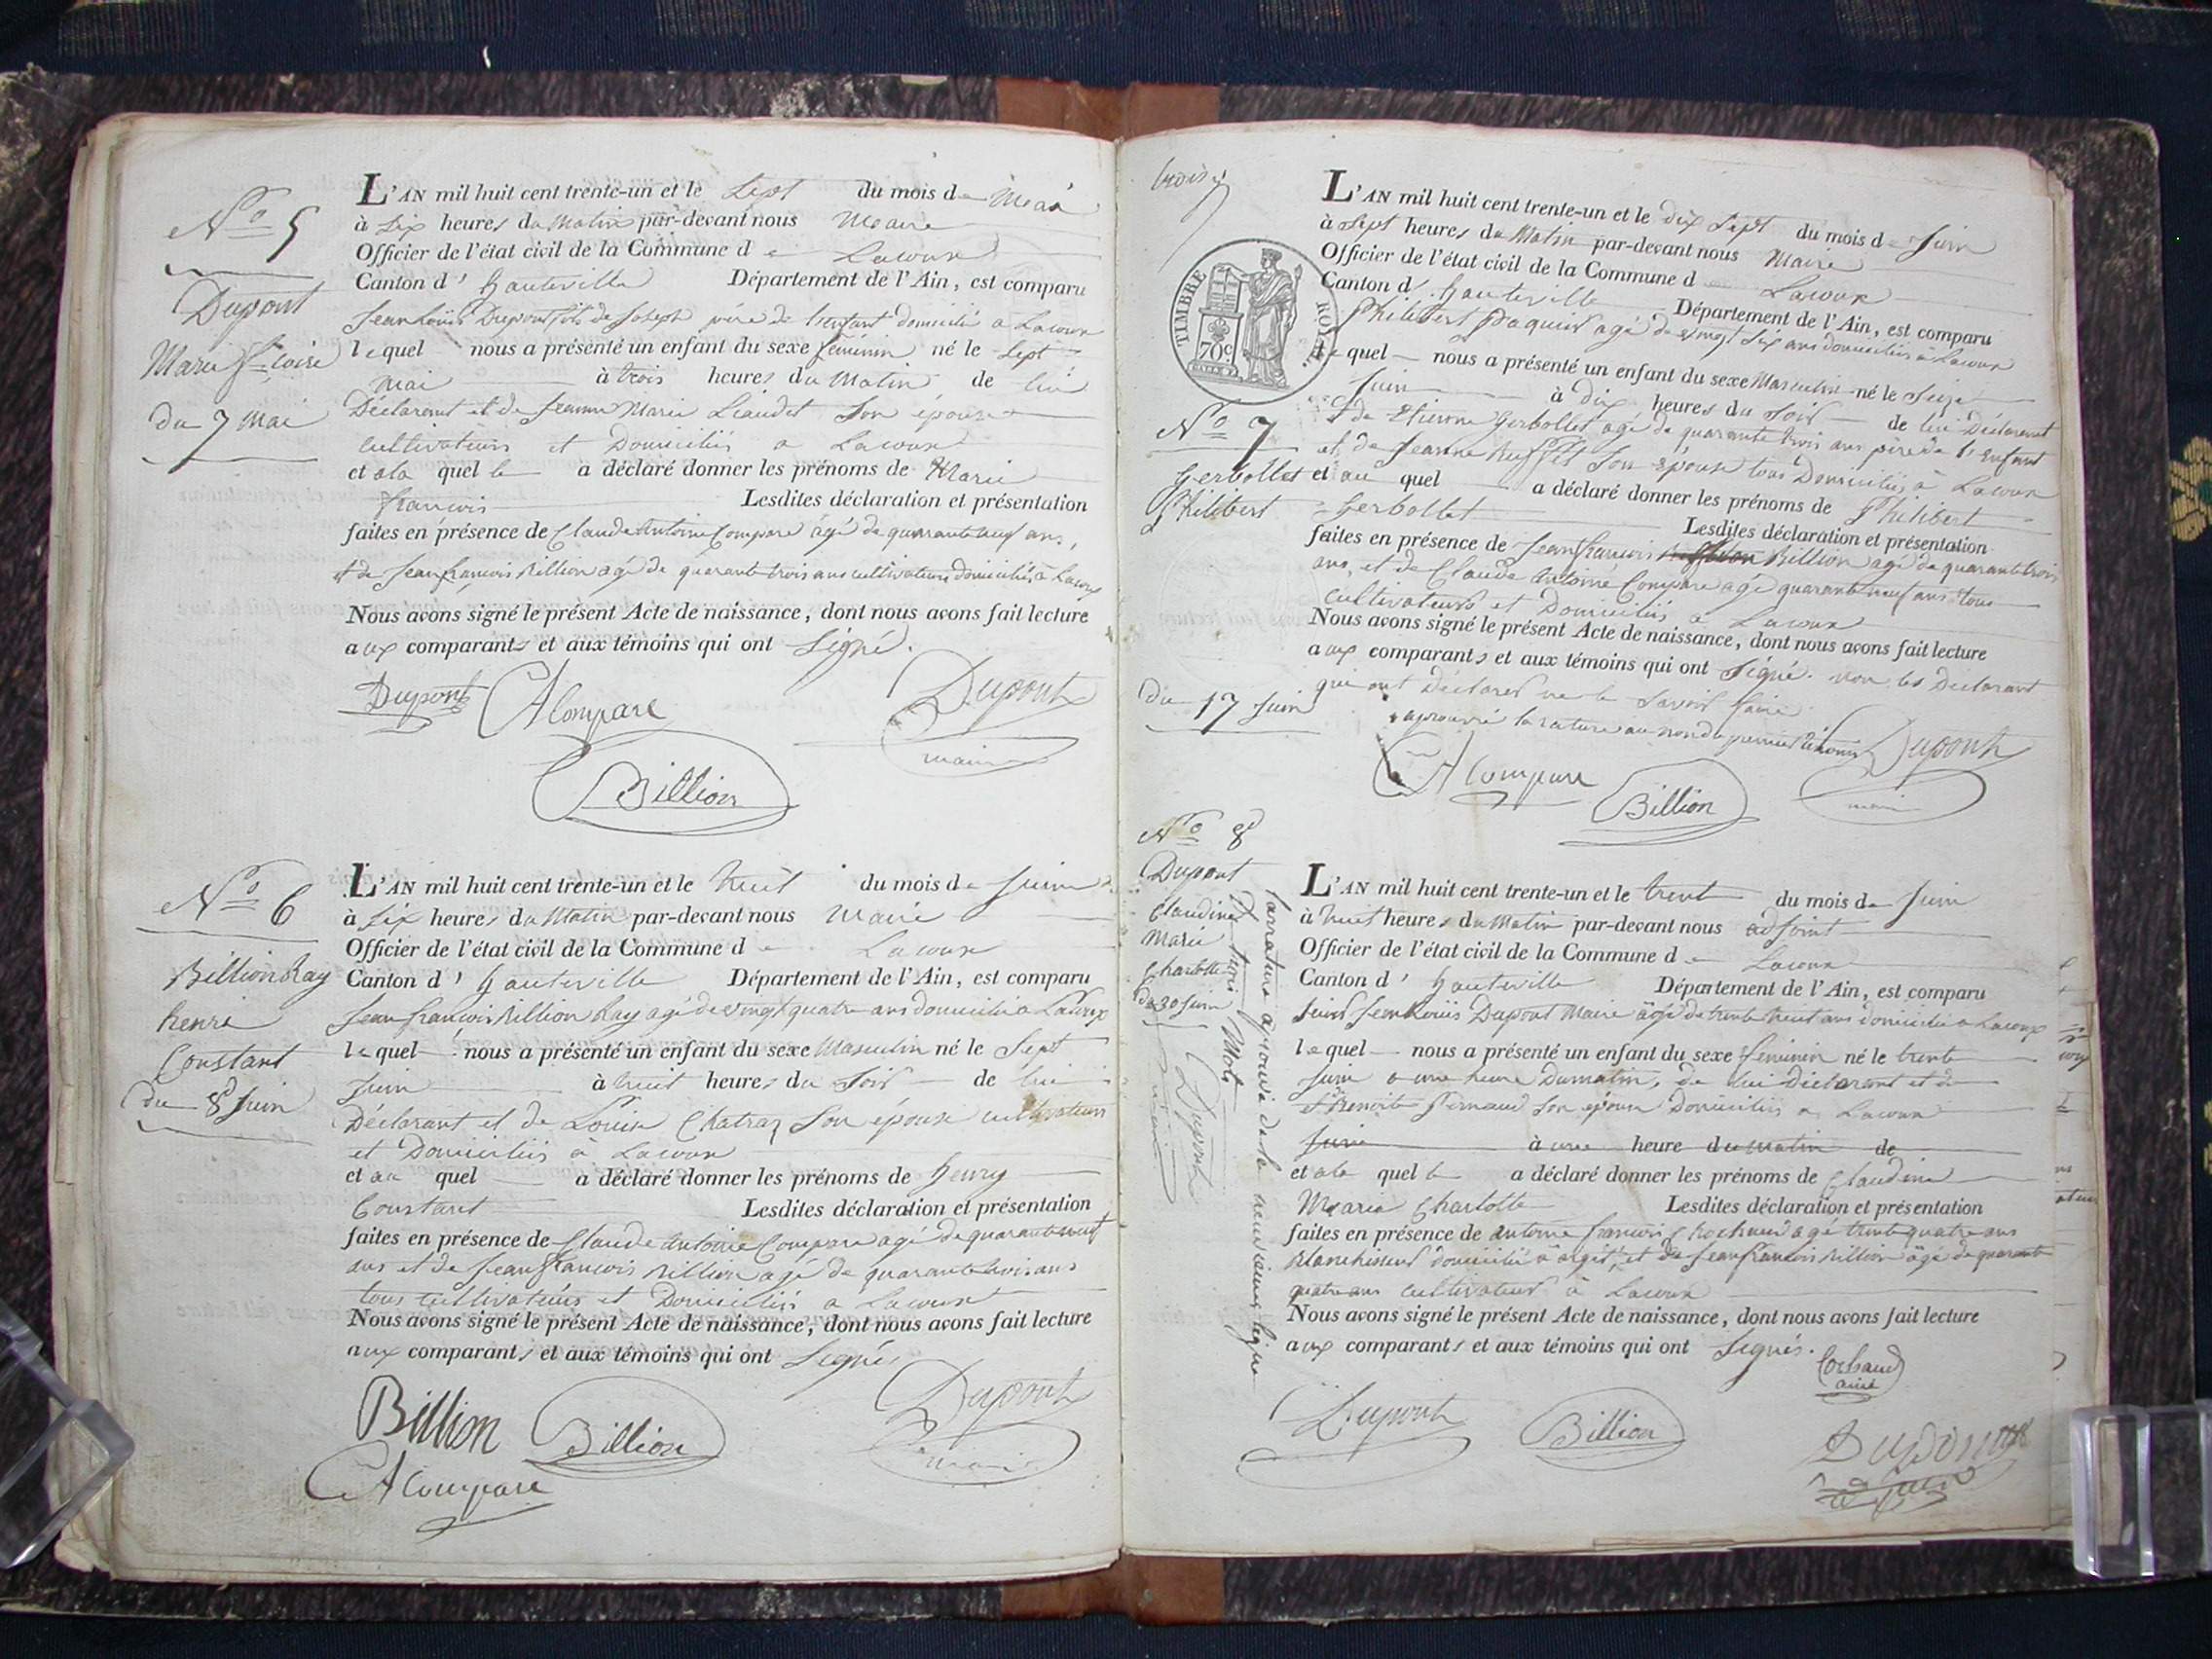 N.o 5
Dupont
Marie f.coise
du 7 Mai
L'AN mil huit cent trente-un et le Sept du mois de Mai
à Six heures du Matin par-devant nous Maire
Officier de l'état civil de la Commune de Lacoux
Canton d'hauteville Département de l'Ain, est comparu
Jean Louis Dupont fils de Joseph père de l'enfant domicilié a Lacoux
lequel nous a présenté un enfant du sexe feminin né le Sept
mai à trois heures du Matin de lui
Déclarant et de Jeanne Marie Liaudet Son épouse
cultivateurs et Domiciliés a Lacoux
et ala quel le a déclaré donner les prénoms de Marie
francois Lesdites déclaration et présentation
faites en présence de Claude Antoine Compare agé de quarante neuf ans,
et de Jean francois Billion agé de quarante trois ans cultivateurs domiciliés à Lacoux
Nous avons signé le présent Acte de naissance, dont nous avons fait lecture
aux comparants et aux témoins qui ont Signé.
Dupont CA Compare Dupont
maire
Billion
N.o 6
Billion Ray
henri
Constant
du 8 Juin
L'AN mil huit cent trente-un et le huit du mois de Juin
à Six heures du Matin par-devant nous Maire
Officier de l'état civil de la Commune de Lacoux
Canton d'hauteville Département de l'Ain, est comparu
Jean francois Billion Ray agé de vingt quatre ans domicilié a Lacoux
lequel nous a présenté un enfant du sexe Masculin né le Sept
Juin à huit heures du Soir de lui
Déclarant et de Louise Chatraz Son épouse cultivateurs
et Domiciliés à Lacoux
et au quel a déclaré donner les prénoms de henry
Constant Lesdites déclaration et présentation
faites en présence de Claude Antoine Compare agé de quarante neuf
ans et de Jean francois Billion agé de quarante trois ans
tous cultivateurs et Domiciliés a Lacoux
Nous avons signé le présent Acte de naissance, dont nous avons fait lecture
aux comparants et aux témoins qui ont Signés
Billion Billion Dupont
CA Compare maire
trois
TIMBRE ROYAL
70c
N.o 7
Gerbollet
Philibert
du 17 Juin
L'AN mil huit cent trente-un et le dix Sept du mois de Juin
à Sept heures du Matin par-devant nous Maire
Officier de l'état civil de la Commune d Lacoux
Canton d'hauteville Département de l'Ain, est comparu
Philibert agé de vingt Six ans domicilié à Lacoux
le quel nous a présenté un enfant du sexe Masculin né le Seize
Juin à dix heures du Soir de lui Déclarant
et de Etienne Gerbollet agé de quarante trois ans père de l'enfant
et de Jeanne Son épouse tous Domiciliés à Lacoux
et au quel a déclaré donner les prénoms de Philibert
Gerbollet Lesdites déclaration et présentation
faites en présence de Jean francois Billion agé de quarante trois
ans, et de Claude Antoine Compare agé quarante neuf ans tous
cultivateurs et Domiciliés a Lacoux
Nous avons signé le présent Acte de naissance, dont nous avons fait lecture
aux comparants et aux témoins qui ont Signé. non les Déclarant
qui ont Déclaré ne le Savoir faire
aprouvé la rature au nom du premier témoin Dupont
CA Compare Billion maire
N.o 8
Dupont
Claudine
Marie
Charlotte
du 30 Juin
la rature aprouvé de la neuvieme ligne
trois Mots
Dupont
maire
L'AN mil huit cent trente-un et le trent du mois de Juin
à huit heures du Matin par-devant nous adjoint
Officier de l'état civil de la Commune de Lacoux
Canton d'hauteville Département de l'Ain, est comparu
Jean Louis Dupont Maire agé de trente huit ans domicilié a Lacoux
lequel nous a présenté un enfant du sexe feminin né le trente
Juin a une heure Du matin, de lui Déclarant et de
Benoite Pernaud Son épouse Domiciliés a Lacoux
Juin à une heure du matin de
et ala quel le a déclaré donner les prénoms de Claudine
Marie Charlotte Lesdites déclaration et présentation
faites en présence de antoine francois Cochaud agé trente quatre ans
Blanchisseur domicilié à argit, et de Jean francois Billion agé de quarante
quatre ans cultivateur à Lacoux
Nous avons signé le présent Acte de naissance, dont nous avons fait lecture
aux comparants et aux témoins qui ont Signés.
Cochaud
ainé
Dupont Billion Dupont